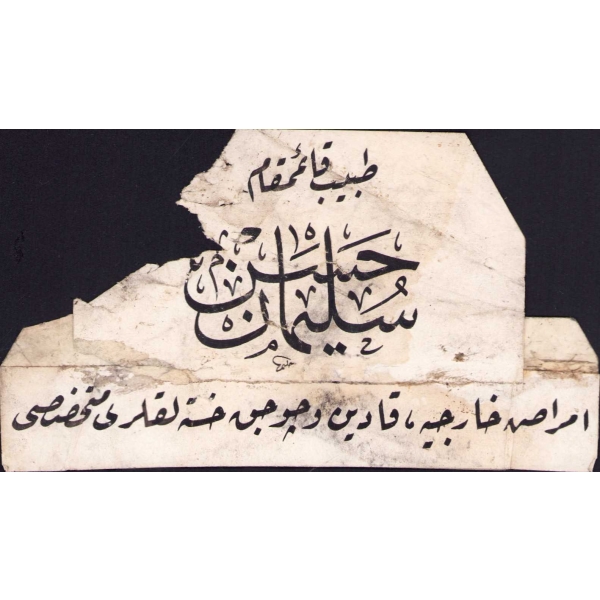 طبيب قائمقام
حسن
سليمان
امراض خارجيه، قادين وچوجق خسته لقلرى متخصصى